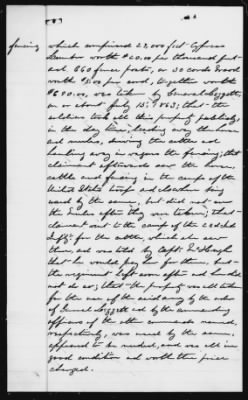 fencing which comprised 23,000 feet Cypress
lumber worth $20.00 per thousand feet
and 660 fence posts, or 30 cords wood
worth $5.00 per cord, together worth
$690.00, was taken by General Leggett,
on or about July 15, 1863; that the
soldiers took all this property publicly
in the day time, leading away the horses
and mules, driving the cattle and
hauling away in wagons the fencing; that
claimant afterwards saw the horses,
cattle and fencing in the camps of the
United States troops and elsewhere being
used by the same, but did not see
the mules after they were taken; that
claimant went to the camps of the
Infty. for the cattle, which he saw
there, and was told by Capt.
that he would pay him for them, but
the regiment left soon after and he did
not do so; that the property was all taken
for the use of the said army by the order
of General Leggett and by the commanding
officers of the other commands named,
respectively, was used by the same,
appeared to be needed, and was all in
good condition and worth the price
charged.